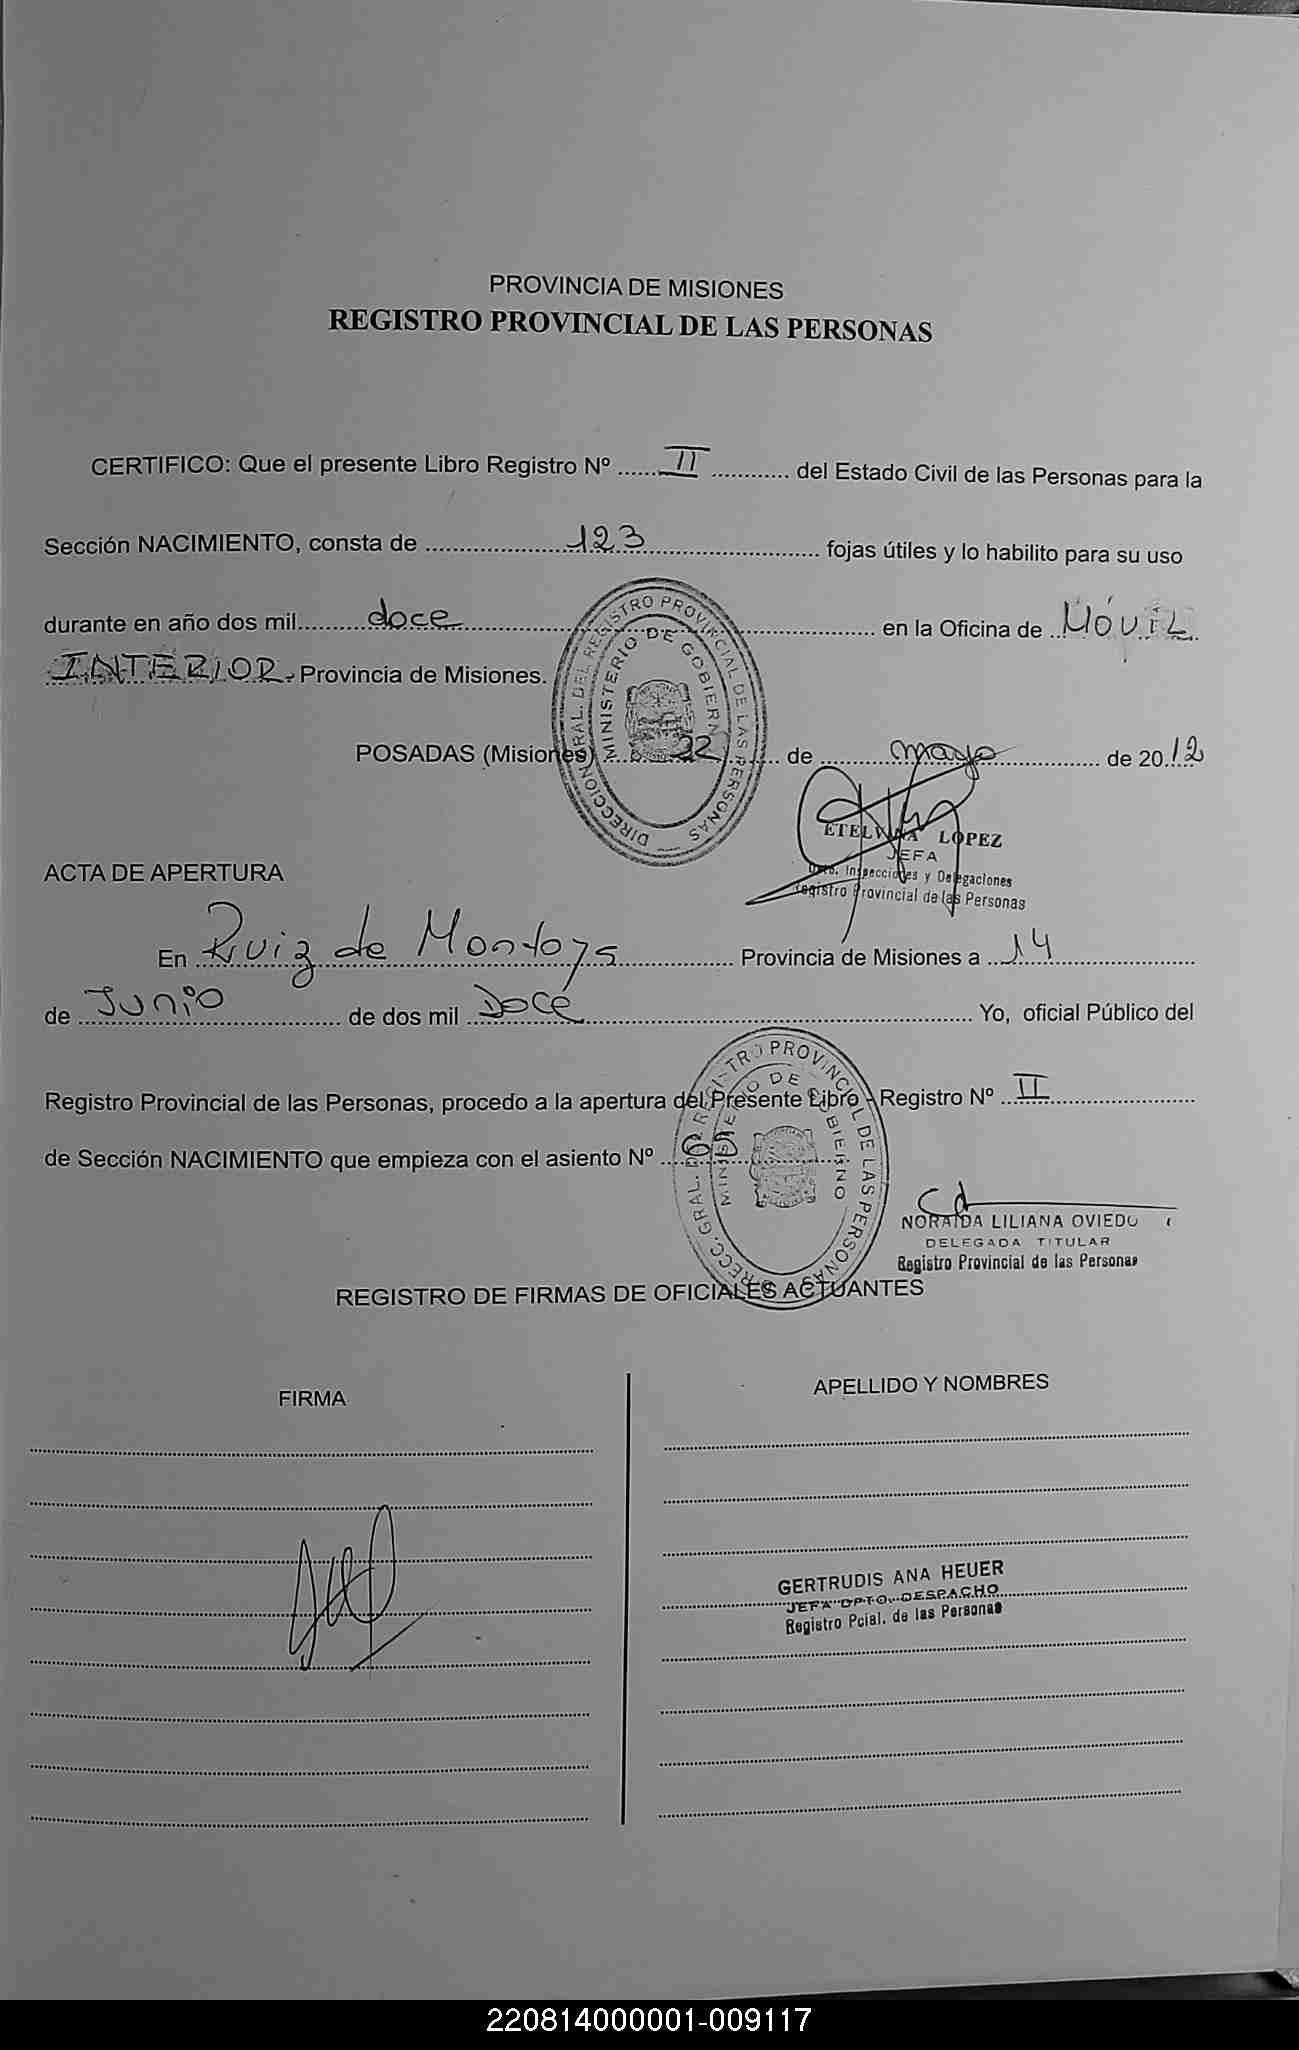 PROVINCIA DE MISIONES
REGISTRO PROVINCIAL DE LAS PERSONAS
CERTIFICO: Que el presente Libro Registro Nº ...... II ............ del Estado Civil de las Personas para la
Sección NACIMIENTO, consta de ........ 123 ........ fojas útiles y lo habilito para su uso
durante en año dos mil ........ doce ........ en la Oficina de .. MÓVIL
INTERIOR.- Provincia de Misiones.
DIRECCION GRAL. DEL REGISTRO PROVINCIAL DE LAS PERSONAS
MINISTERIO DE GOBIERNO
POSADAS (Misiones) ........ 22 ........ de ........ mayo ........ de 20.12
ETELVINA LOPEZ
JEFA
Dpto. Inspecciones y Delegaciones
Registro Provincial de las Personas
ACTA DE APERTURA
En Ruiz de Montoya ........ Provincia de Misiones a .. 14 ........
de Junio ........ de dos mil Doce ........ Yo, oficial Público del
Registro Provincial de las Personas, procedo a la apertura del Presente Libro - Registro Nº .. II ........
de Sección NACIMIENTO que empieza con el asiento Nº ....
DIRECC. GRAL. DEL REGISTRO PROVINCIAL DE LAS PERSONAS
MINISTERIO DE GOBIERNO
NORAIDA LILIANA OVIEDO
DELEGADA TITULAR
Registro Provincial de las Personas
REGISTRO DE FIRMAS DE OFICIALES ACTUANTES
FIRMA
APELLIDO Y NOMBRES
GERTRUDIS ANA HEUER
JEFA DPTO. DESPACHO
Registro Pcial. de las Personas
220814000001-009117